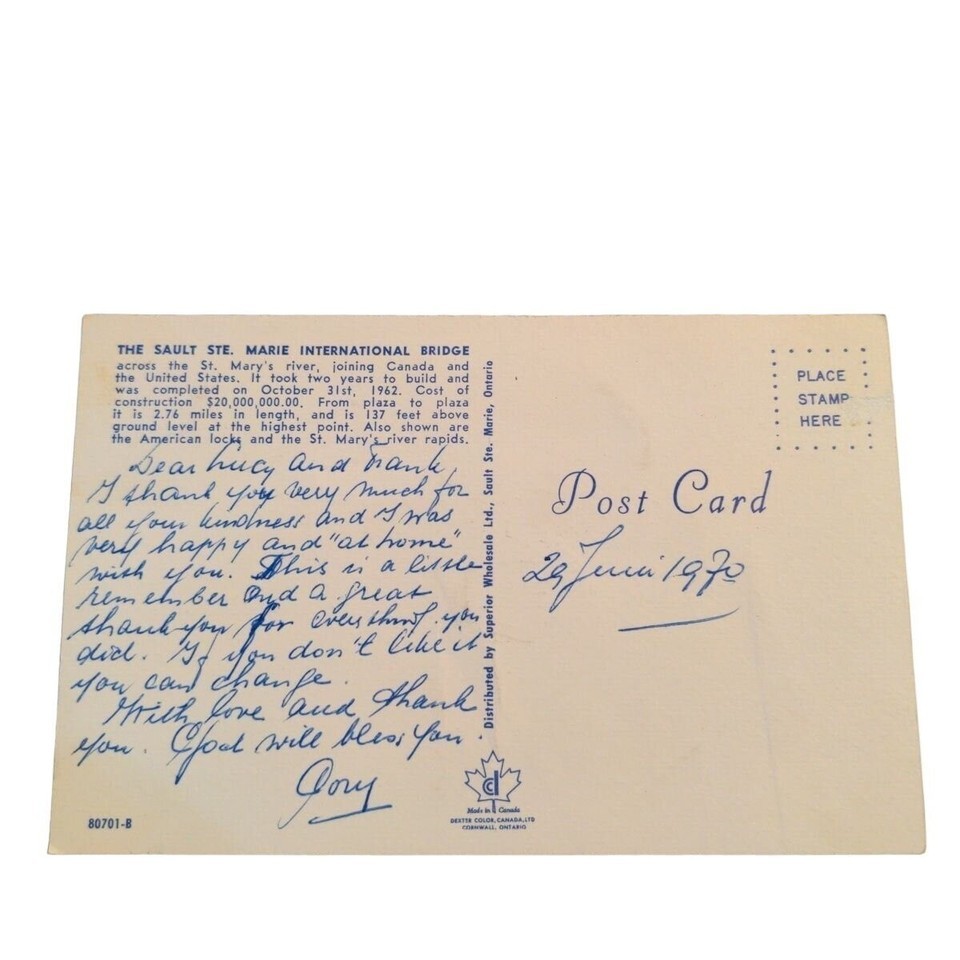 THE SAULT STE. MARIE INTERNATIONAL BRIDGE
across the St. Mary's river, joining Canada and
the United States. It took two years to build and
was completed on October 31st, 1962. Cost of
construction $20,000,000.00. From plaza to plaza
it is 2.76 miles in length, and is 137 feet above
ground level at the highest point. Also shown are
the American locks and the St. Mary's river rapids.
Dear Lucy and Frank,
I thank you very much for
all your kindness and I was
very happy and "at home"
with you. This is a little
remember and a great
thank you for everything you
did. If you don't like it
you can change.
With love and thank
you. God will bless you.
80701-B
Distributed by Superior Wholesale Ltd., Sault Ste. Marie, Ontario
cd
Made in Canada
DEXTER COLOR, CANADA, LTD
CORNWALL, ONTARIO
PLACE
STAMP
HERE
Post Card
29 Juni 1970